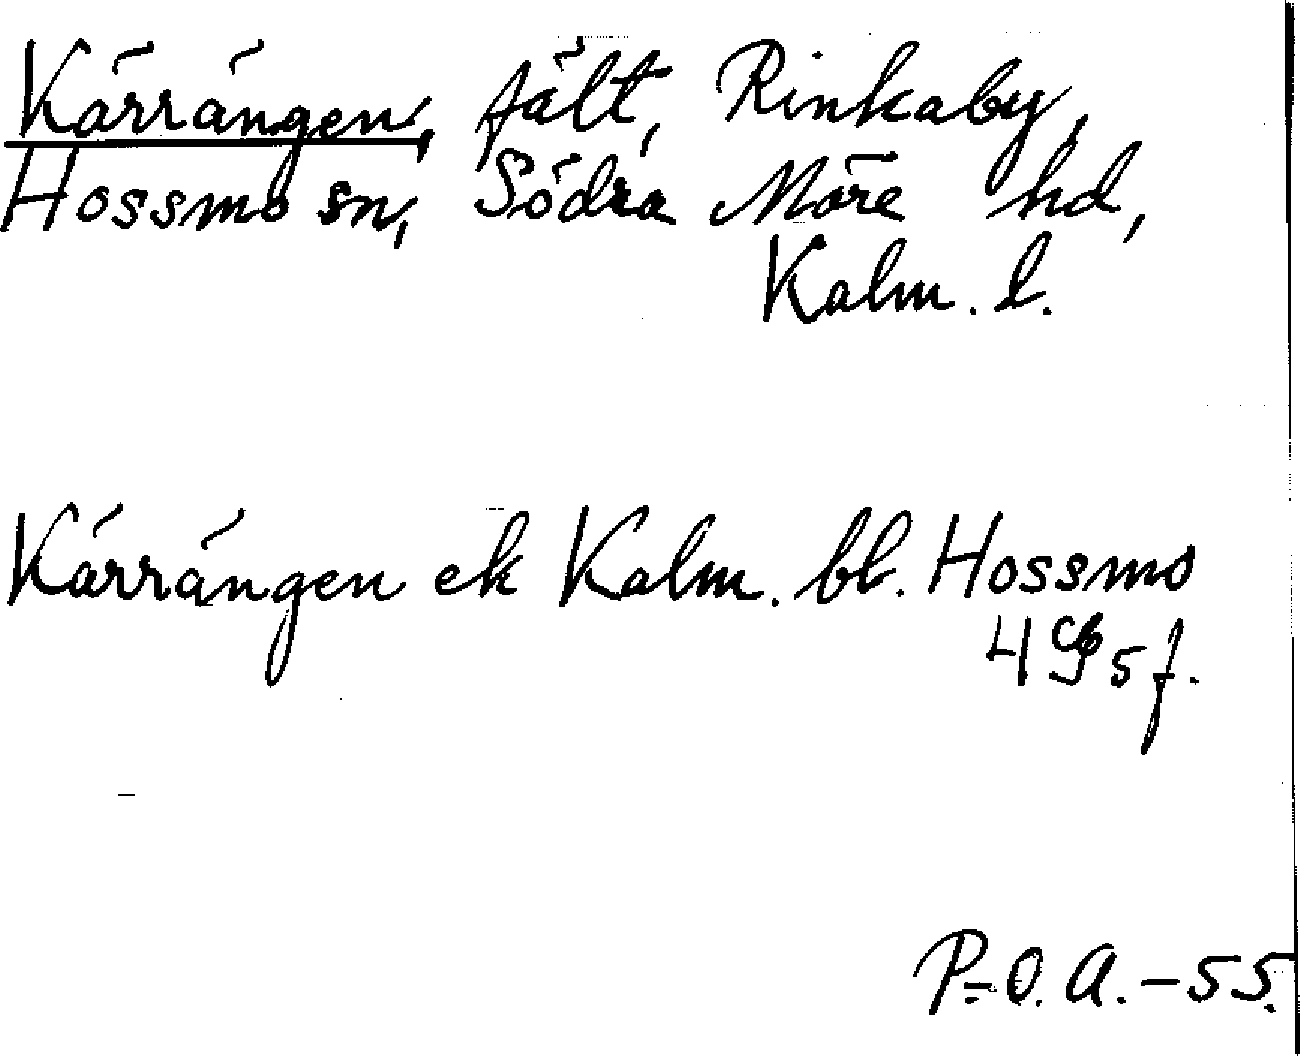 Kärrängen, fält, Rinkaby,
Hossmo sn, Södra Möre hd,
Kalm. l.
Kärrängen ek Kalm. bl. Hossmo
4 g 5 f.
P.-O. A. - 55.